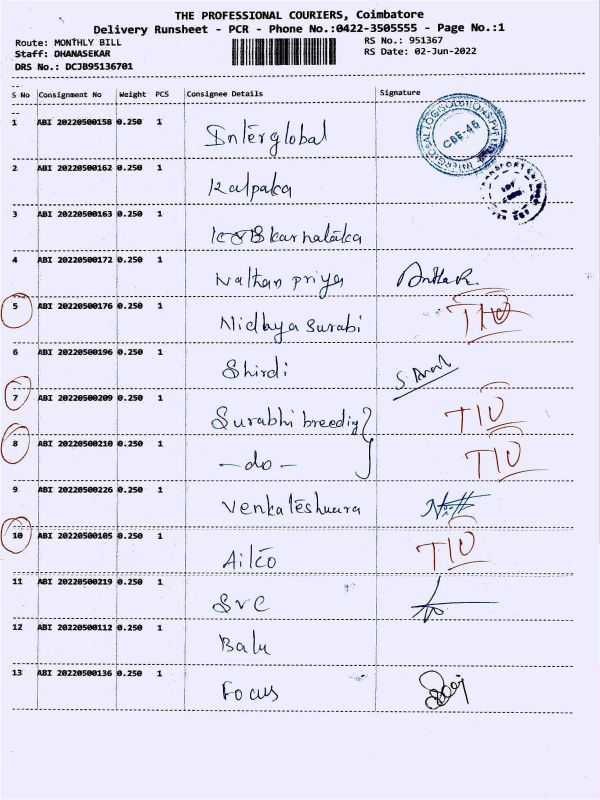 THE PROFESSIONAL COURIERS, Coimbatore
Delivery Runsheet - PCR - Phone No.:0422-3505555 - Page No.:1
Route: MONTHLY BILL
Staff: DHANASEKAR
DRS No.: DCJB95136701
RS No.: 951367
RS Date: 02-Jun-2022
S No Consignment No Weight PCS Consignee Details Signature
1 ABI 20220500158 0.250 1 Interglobal
CBE-45
2 ABI 20220500162 0.250 1 Kalpaka
3 ABI 20220500163 0.250 1 karnataka
4 ABI 20220500172 0.250 1 Nathan priya
5 ABI 20220500176 0.250 1 Nidhya Surabi TIO
6 ABI 20220500196 0.250 1 Shirdi
7 ABI 20220500209 0.250 1 Surabhi breedig TIO
8 ABI 20220500210 0.250 1 - do - TIO
9 ABI 20220500226 0.250 1 Venkateshwara
10 ABI 20220500105 0.250 1 Ailco TIO
11 ABI 20220500219 0.250 1 SVC
12 ABI 20220500112 0.250 1 Balu
13 ABI 20220500136 0.250 1 Focus